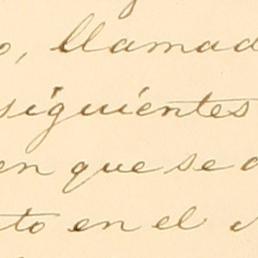 o, llamad
siguientes
en que se
to en el